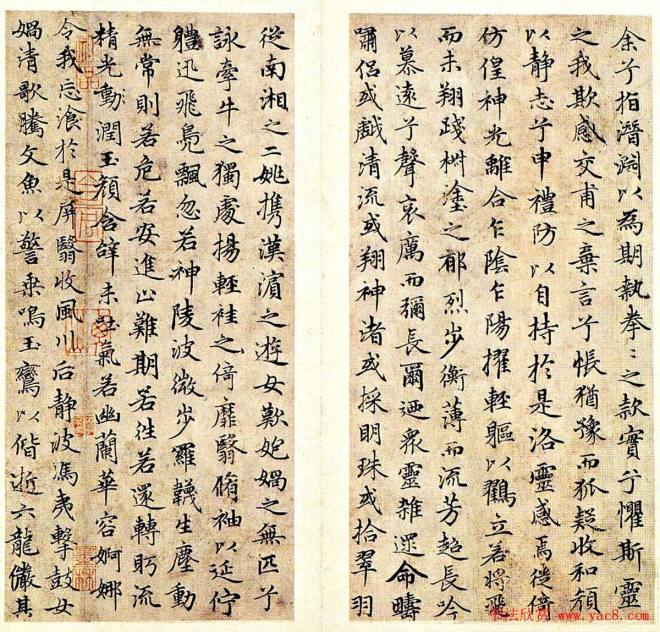 余兮指潛淵以為期執拳〻之款實兮懼斯靈
之我欺感交甫之棄言兮悵猶豫而狐疑收和顏
以静志兮申禮防以自持於是洛靈感焉徙倚
仿偟神光離合乍陰乍陽擢輕軀以鶴立若將飛
而未翔踐椒塗之郁烈步衡薄而流芳超長吟
以慕遠兮聲哀厲而彌長爾迺衆靈雜遝命疇
嘯侣或戲清流或翔神渚或採明珠或拾翠羽
從南湘之二姚攜漢濱之遊女歎匏媧之無匹兮
詠牽牛之獨處揚輕袿之倚靡翳脩袖以延佇
軆迅飛鳧飄忽若神陵波微步羅韈生塵動
無常則若危若安進止難期若往若還轉眄流
精光動潤玉顏含辝未吐氣若幽蘭華容婀娜
令我忘飡於是屏翳收風川后静波馮夷擊鼓女
媧清歌騰文魚以警乘鳴玉鸞以偕逝六龍儼其
书法欣赏 www.yac8.com